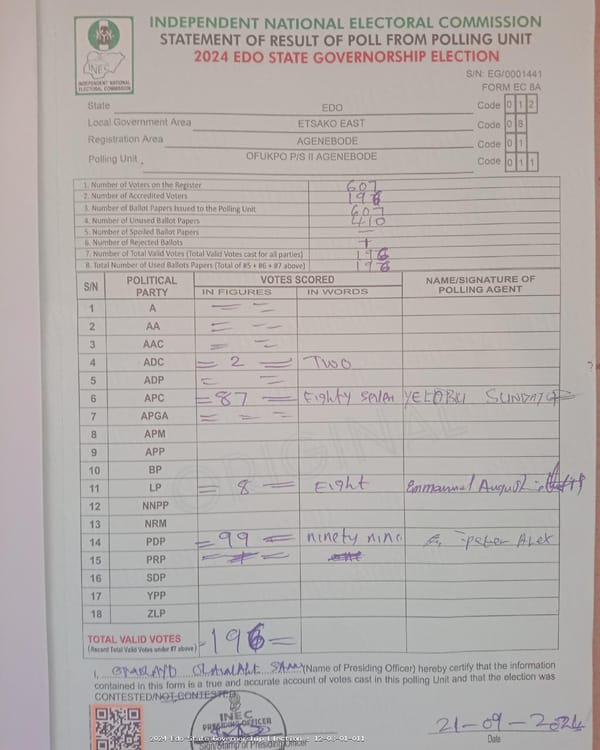 INDEPENDENT NATIONAL ELECTORAL COMMISSION
STATEMENT OF RESULT OF POLL FROM POLLING UNIT
2024 EDO STATE GOVERNORSHIP ELECTION
INEC
INDEPENDENT NATIONAL ELECTORAL COMMISSION
S/N: EG/0001441
FORM EC 8A
State EDO Code 0 1 2
Local Government Area ETSAKO EAST Code 0 8
Registration Area AGENEBODE Code 0 1
Polling Unit OFUKPO P/S II AGENEBODE Code 0 1 1
1. Number of Voters on the Register 607
2. Number of Accredited Voters 196
3. Number of Ballot Papers Issued to the Polling Unit 607
4. Number of Unused Ballot Papers 410
5. Number of Spoiled Ballot Papers —
6. Number of Rejected Ballots
7. Number of Total Valid Votes (Total Valid Votes cast for all parties) 196
8. Total Number of Used Ballots Papers (Total of #5 + #6 + #7 above) 196
S/N POLITICAL PARTY VOTES SCORED NAME/SIGNATURE OF POLLING AGENT
IN FIGURES IN WORDS
1 A
2 AA
3 AAC
4 ADC = 2 = TWO
5 ADP
6 APC = 87 = Eighty Seven SUNDAY
7 APGA
8 APM
9 APP
10 BP
11 LP = 8 = Eight Emmanuel August
12 NNPP
13 NRM
14 PDP = 99 = ninety nine peter Alex
15 PRP
16 SDP
17 YPP
18 ZLP
TOTAL VALID VOTES 196 =
(Record Total Valid Votes under #7 above)
ORIGINAL
I, SAM (Name of Presiding Officer) hereby certify that the information
contained in this form is a true and accurate account of votes cast in this polling Unit and that the election was
CONTESTED/NOT CONTESTED
INEC
PRESIDING OFFICER
21-09-2024
2024 Edo State Governorship Election - 12-08-01-011
Sign/Stamp of Presiding Officer
Date